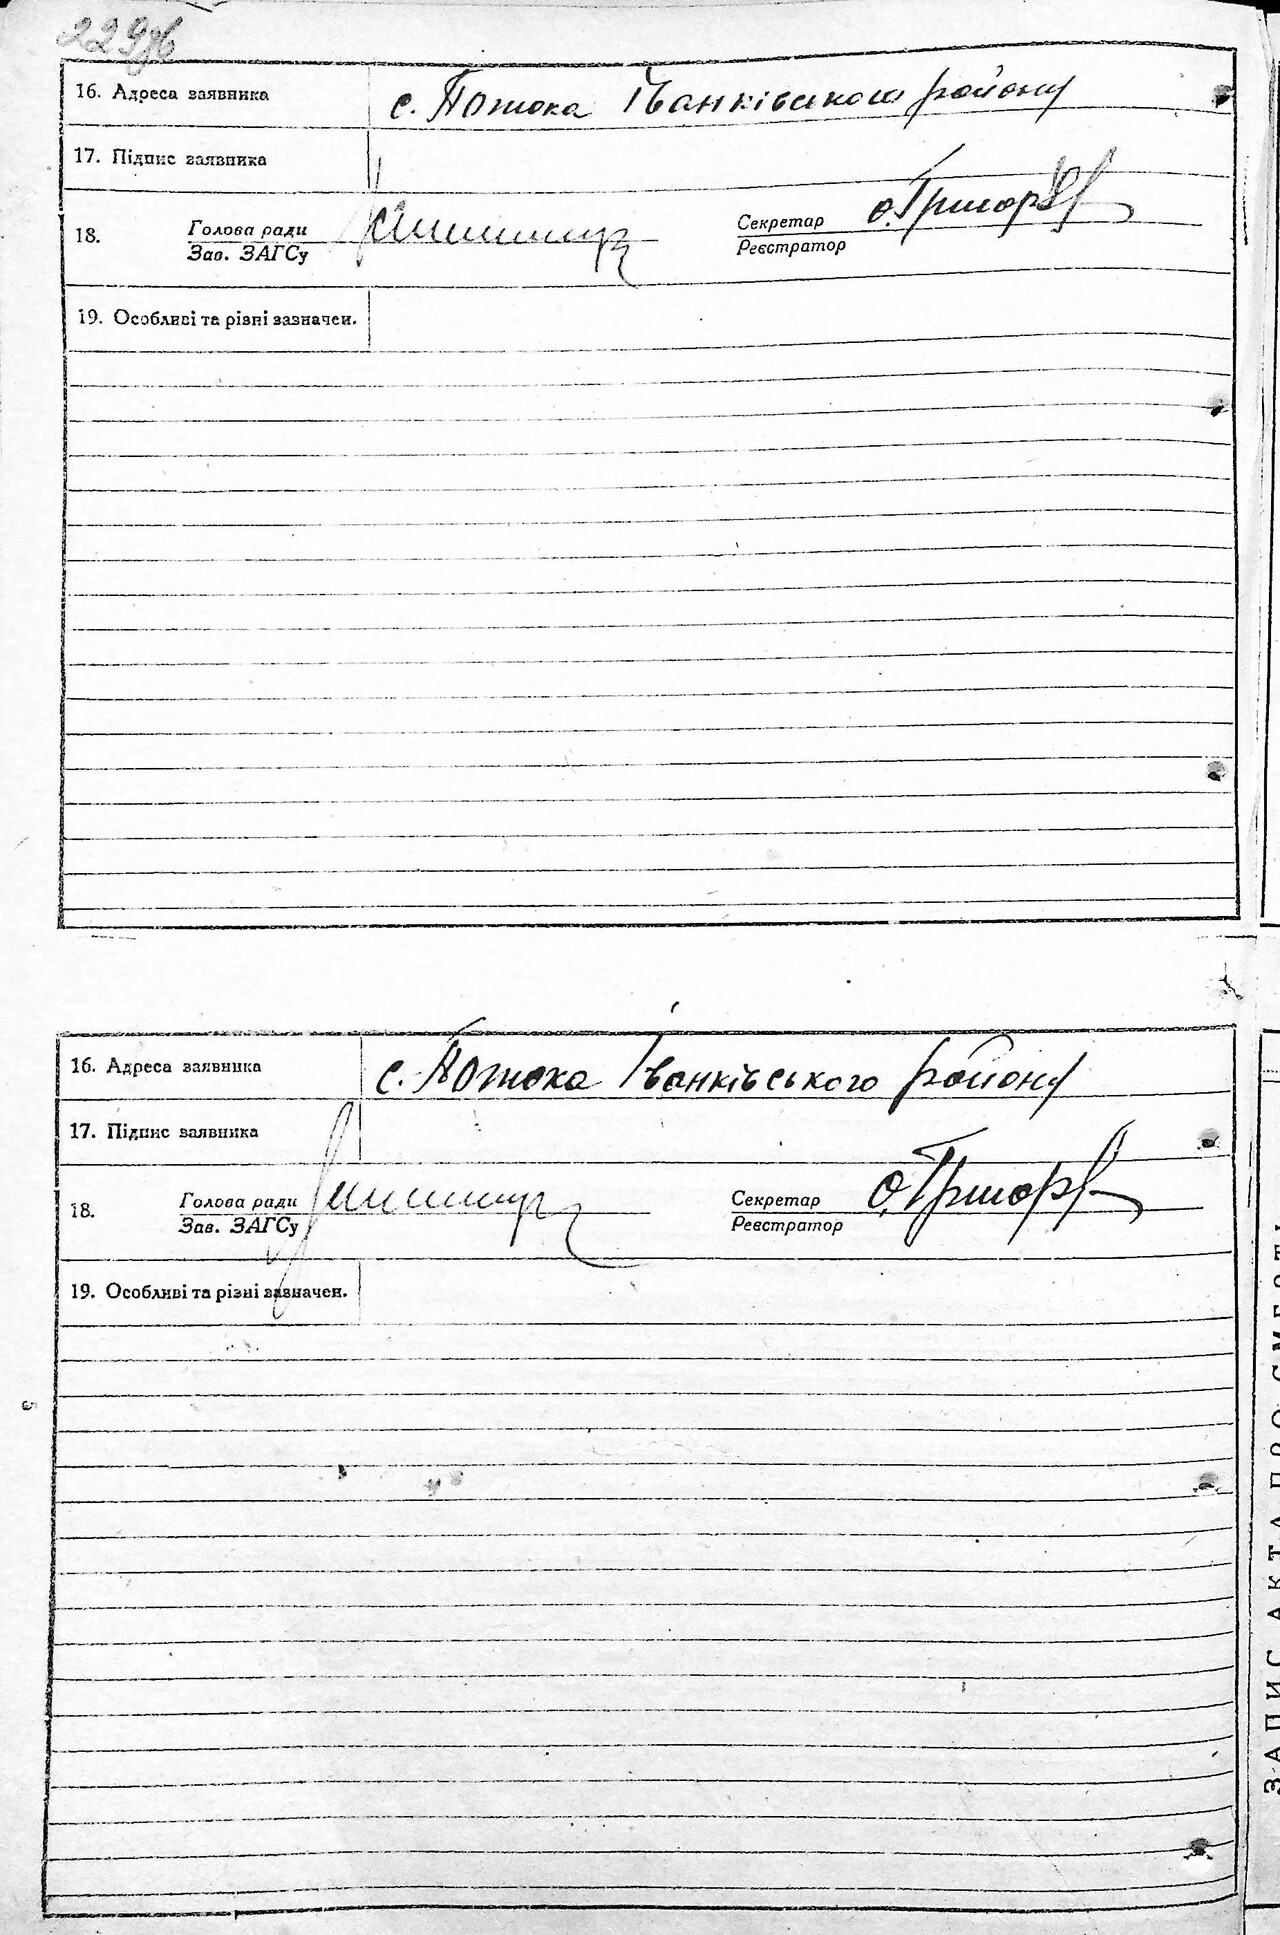 229зв
16. Адреса заявника с. Потока Іванківського району
17. Підпис заявника
18. Голова ради
Зав. ЗАГСу
Секретар
Реєстратор
19. Особливі та різні зазначен.
16. Адреса заявника с. Потока Іванківського району
17. Підпис заявника
18. Голова ради
Зав. ЗАГСу
Секретар
Реєстратор
19. Особливі та різні зазначен.
ЗАПИС АКТА ПРО СМЕРТЬ